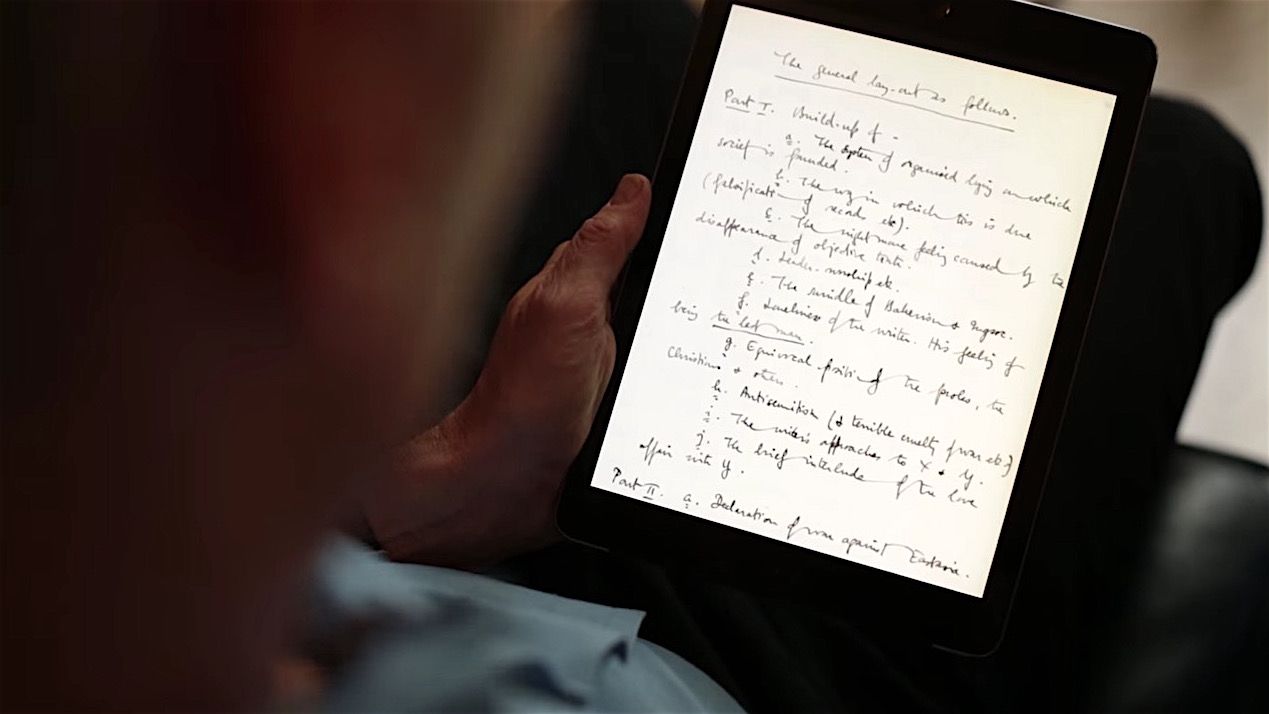 The general lay-out as follows.
Part I. Build-up of -
a. The system of organised lying on which
society is founded.
b. The way in which this is done
(falsification of records etc).
c. The nightmare feeling caused by the
disappearance of objective truth.
d. Leader-worship etc.
e. The swindle of Bakerism & Ingsoc.
f. Loneliness of the writer. His feeling of
being the last man.
g. Equivocal position of the proles, the
Christians & others.
h. Antisemitism (& terrible cruelty of war etc)
i. The writer's approaches to X & Y.
j. The brief interlude of the love
affair with Y.
Part II. a. Declaration of war against Eastasia.